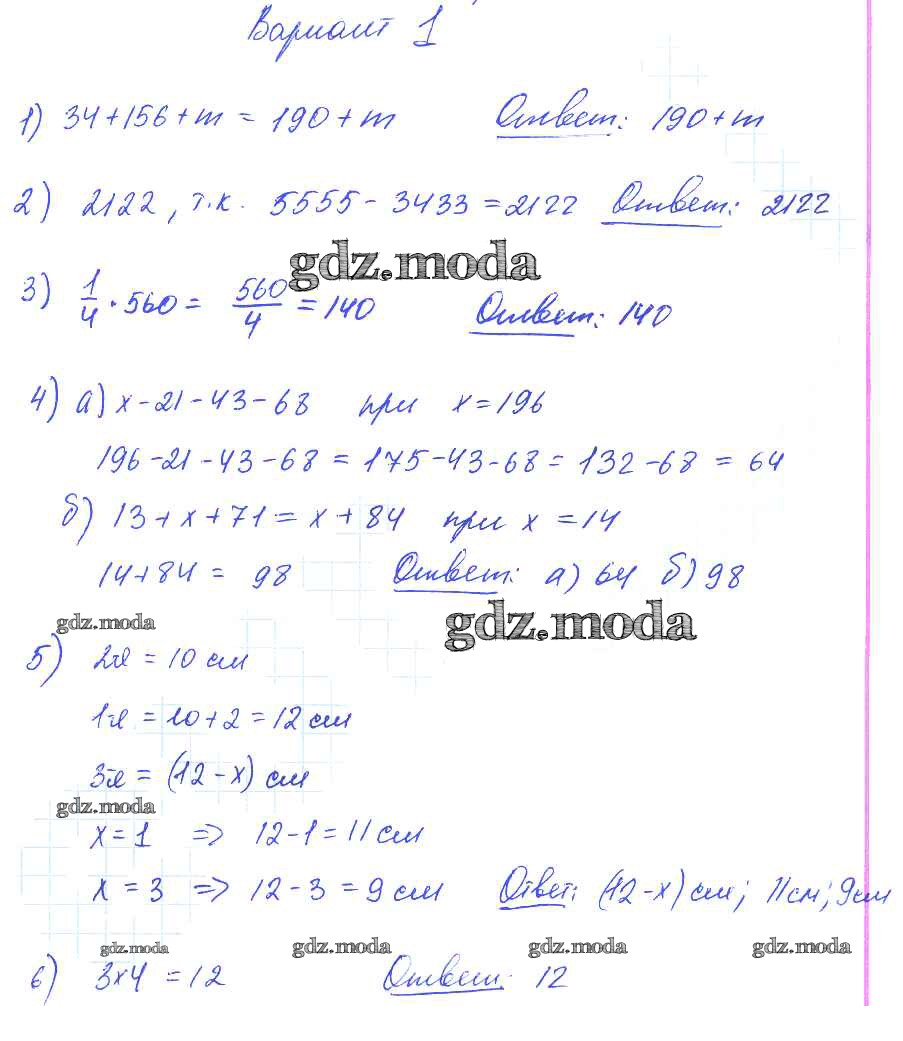 Вариант 1
1) 34+156+m = 190+m Ответ: 190+m
2) 2122, т.к. 5555-3433=2122 Ответ: 2122
gdz.moda
3) 1/4 · 560 = 560/4 = 140 Ответ: 140
4) а) x-21-43-68 при x=196
196-21-43-68 = 175-43-68 = 132-68 = 64
б) 13+x+71 = x+84 при x=14
14+84 = 98 Ответ: а) 64 б) 98
gdz.moda gdz.moda
5) 2й = 10 см
1й = 10+2 = 12 см
3й = (12-x) см
gdz.moda
x=1 => 12-1=11 см
x=3 => 12-3=9 см Ответ: (12-x) см; 11см; 9см
gdz.moda gdz.moda gdz.moda gdz.moda
6) 3×4 = 12 Ответ: 12